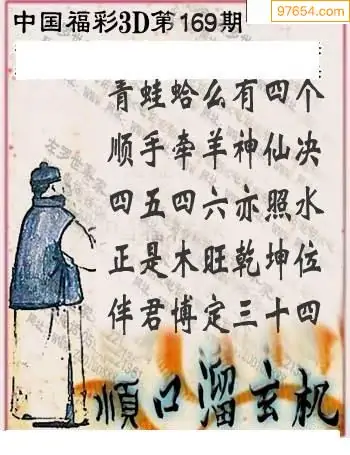 97654.com
中国福彩3D第169期
青蛙蛤么有四个
顺手牵羊神仙决
四五四六亦照水
正是木旺乾坤位
伴君博定三十四
顺口溜玄机